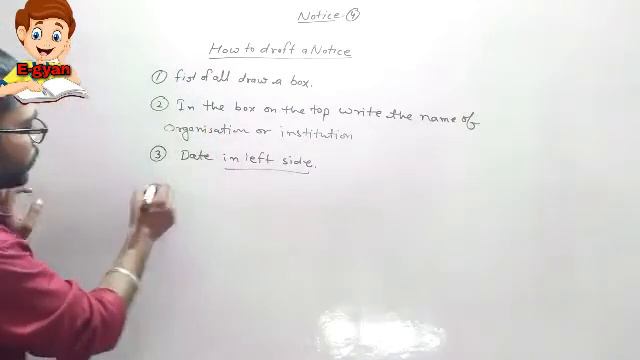 Notice (4)
E-gyan
How to draft a Notice
(1) fist of all draw a box.
(2) In the box on the top write the name of
organisation or institution
(3) Date in left side.